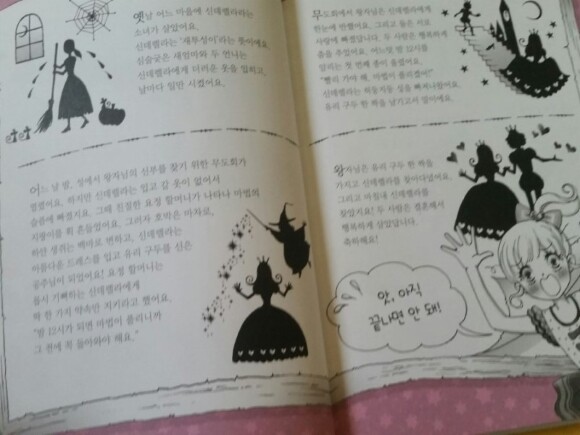 옛날 어느 마을에 신데렐라라는
소녀가 살았어요.
신데렐라는 '재투성이'라는 뜻이에요.
심술궂은 새엄마와 두 언니는
신데렐라에게 더러운 옷을 입히고,
날마다 일만 시켰어요.
어느 날 밤, 성에서 왕자님의 신부를 찾기 위한 무도회가
열렸어요. 하지만 신데렐라는 입고 갈 옷이 없어서
슬픔에 빠졌지요. 그때 친절한 요정 할머니가 나타나 마법의
지팡이를 휙 휘둘렀어요. 그러자 호박은 마차로,
하얀 생쥐는 백마로 변하고, 신데렐라는
아름다운 드레스를 입고 유리 구두를 신은
공주님이 되었어요! 요정 할머니는
몹시 기뻐하는 신데렐라에게
딱 한 가지 약속만 지키라고 했어요.
"밤 12시가 되면 마법이 풀리니까
그 전에 꼭 돌아와야 해요."
무도회에서 왕자님은 신데렐라에게
한눈에 반했어요. 그리고 둘은 서로
사랑에 빠졌답니다. 두 사람은 행복하게
춤을 추었어요. 어느덧 밤 12시를
알리는 첫 번째 종이 울렸어요.
"빨리 가야 해. 마법이 풀리겠어!"
신데렐라는 허둥지둥 성을 빠져나왔어요.
유리 구두 한 짝을 남기고서 말이에요.
왕자님은 유리 구두 한 짝을
가지고 신데렐라를 찾아다녔어요.
그리고 마침내 신데렐라를
찾았지요! 두 사람은 결혼해서
행복하게 살았답니다.
축하해요!
앗, 아직
끝나면 안 돼!